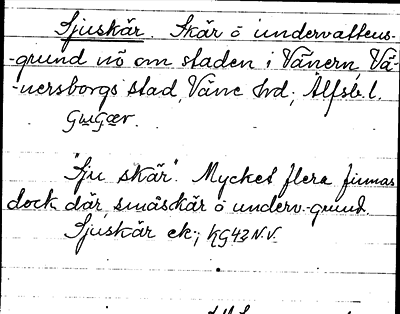 Sjuskär. Skär o undervattens-
-grund nö om staden i Vänern Vä-
-nersborgs stad, Väne hd, Älfsb. l.
GwGær.
"Sju skär". Mycket flera finnas
dock där, småskär o underv.-grund.
Sjuskär ek; KG43 N.V.